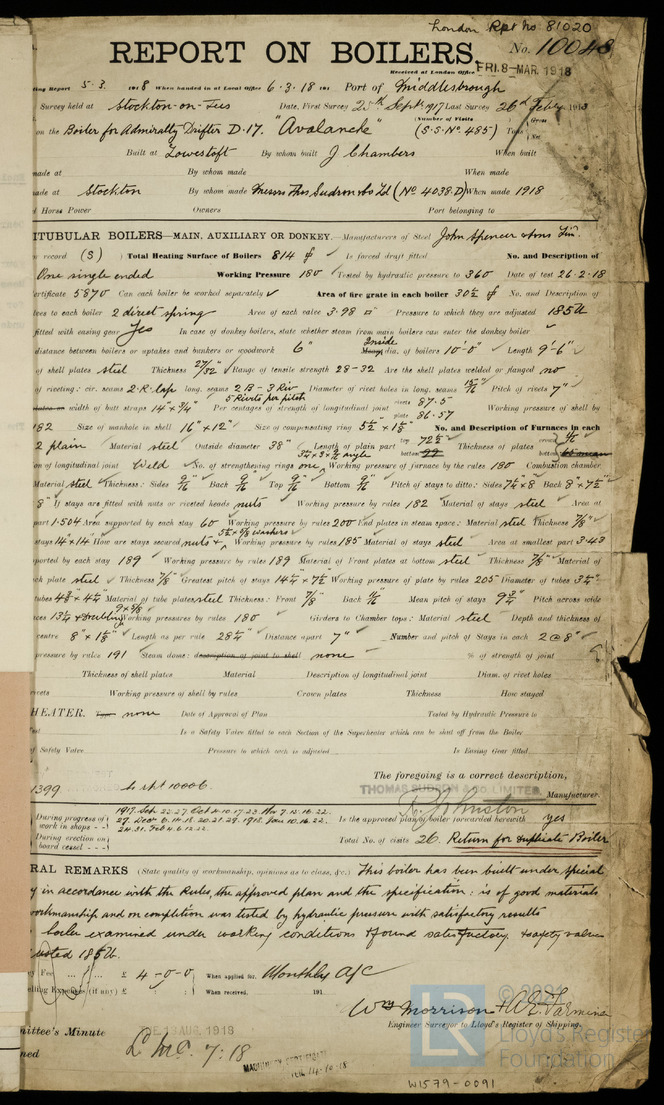 London Rpt No 81020
REPORT ON BOILERS.
No. 10048
Received at London Office FRI. 8 - MAR. 1918
ing Report 5.3. 1918 When handed in at Local Office 6.3.18 191 Port of Middlesbrough
Survey held at Stockton-on-Tees Date, First Survey 25th Septr 1917 Last Survey 26th Feby 1918
(Number of Visits
on the Boiler for Admiralty Drifter D.17. "Avalanche" (S.S. No. 485) Tons Gross Net
Built at Lowestoft By whom built J Chambers When built
made at By whom made When made
ade at Stockton By whom made Messrs Thos Sudron & Co Ld (No 4038.D) When made 1918
d Horse Power Owners Port belonging to
ITUBULAR BOILERS—MAIN, AUXILIARY OR DONKEY.—Manufacturers of Steel John Spencer & Sons Lim.
record (S) Total Heating Surface of Boilers 814 Is forced draft fitted No. and Description of
One single ended Working Pressure 180 Tested by hydraulic pressure to 360 Date of test 26.2.18
ertificate 5870 Can each boiler be worked separately ✓ Area of fire grate in each boiler 30½ No. and Description of
ves to each boiler 2 direct spring Area of each valve 3.98 □" Pressure to which they are adjusted 185 lb
fitted with easing gear Yes In case of donkey boilers, state whether steam from main boilers can enter the donkey boiler ✓
distance between boilers or uptakes and bunkers or woodwork 6" Inside dia. of boilers 10'-0" Length 9'-6"
of shell plates steel Thickness 27/32" Range of tensile strength 28-32 Are the shell plates welded or flanged no
of riveting: cir. seams 2.R.Lap long. seams 2 B - 3 Riv Diameter of rivet holes in long. seams 15/16" Pitch of rivets 7"
5 Rivets per pitch
width of butt straps 14" × 3/4" Per centages of strength of longitudinal joint rivets 87.5 plate 86.57 Working pressure of shell by
182 Size of manhole in shell 16" × 12" Size of compensating ring 5½ × 1⅛" No. and Description of Furnaces in each
2 plain Material steel Outside diameter 38" Length of plain part top 72½ bottom Thickness of plates crown bottom
on of longitudinal joint Weld No. of strengthening rings one Working pressure of furnace by the rules 180 Combustion chamber
Material steel Thickness: Sides 9/16 Back 9/16 Top 9/16 Bottom 9/16 Pitch of stays to ditto: Sides 7½ × 8 Back 8" × 7½"
8" If stays are fitted with nuts or riveted heads nuts Working pressure by rules 182 Material of stays steel Area at
part 1.504 Area supported by each stay 60 Working pressure by rules 200 End plates in steam space: Material steel Thickness 7/8"
stays 14 × 14 How are stays secured nuts & washers Working pressure by rules 185 Material of stays steel Area at smallest part 3.43
ported by each stay 189 Working pressure by rules 189 Material of Front plates at bottom steel Thickness 7/8" Material of
ck plate steel Thickness 7/8" Greatest pitch of stays 14½ × 7½ Working pressure of plate by rules 205 Diameter of tubes 3¼"
tubes 4¾ × 4½ Material of tube plates steel Thickness: Front 7/8 Back 11/16 Mean pitch of stays 9¾" Pitch across wide
ces 13½ & doubling Working pressures by rules 180 Girders to Chamber tops: Material steel Depth and thickness of
centre 8" × 1⅛" Length as per rule 28½ Distance apart 7" Number and pitch of Stays in each 2 @ 8"
pressure by rules 191 Steam dome: description of joint to shell none % of strength of joint
Thickness of shell plates Material Description of longitudinal joint Diam. of rivet holes
rivets Working pressure of shell by rules Crown plates Thickness How stayed
HEATER. Type none Date of Approval of Plan Tested by Hydraulic Pressure to
Is a Safety Valve fitted to each Section of the Superheater which can be shut off from the Boiler
f Safety Valve Pressure to which each is adjusted Is Easing Gear fitted
The foregoing is a correct description,
1399 to rpt 10006 THOMAS SUDRON & CO LIMITED
T. Johnston Manufacturer.
During progress of work in shops - - 1917. Sep. 22.27. Oct 4.10.17.23. Nov 7.12.16.22.
29. Dec 6.14.18.20.21.29. 1918. Jan 10.16.22. Is the approved plan of boiler forwarded herewith yes
During erection on board vessel - - 24.31. Feb 4.6.12.22. Total No. of visits 26. Return for duplicate Boiler
RAL REMARKS (State quality of workmanship, opinions as to class, &c.) This boiler has been built under special
y in accordance with the Rules, the approved plan and the specification: is of good materials
workmanship and on completion was tested by hydraulic pressure with satisfactory results
boiler examined under working conditions & found satisfactory. & safety valves
usted 185 lb.
y Fee ... ... £ 4-0-0 When applied for, Monthly A/C
elling Expenses (if any) £ : : When received, 191
Wm Morrison & A. E. Farmina
Engineer Surveyor to Lloyd's Register of Shipping.
mittee's Minute TUE. 13 AUG. 1918
ned L.M.C. 7:18
W1579-0091
LR
© 2021
Lloyd's Register
Foundation